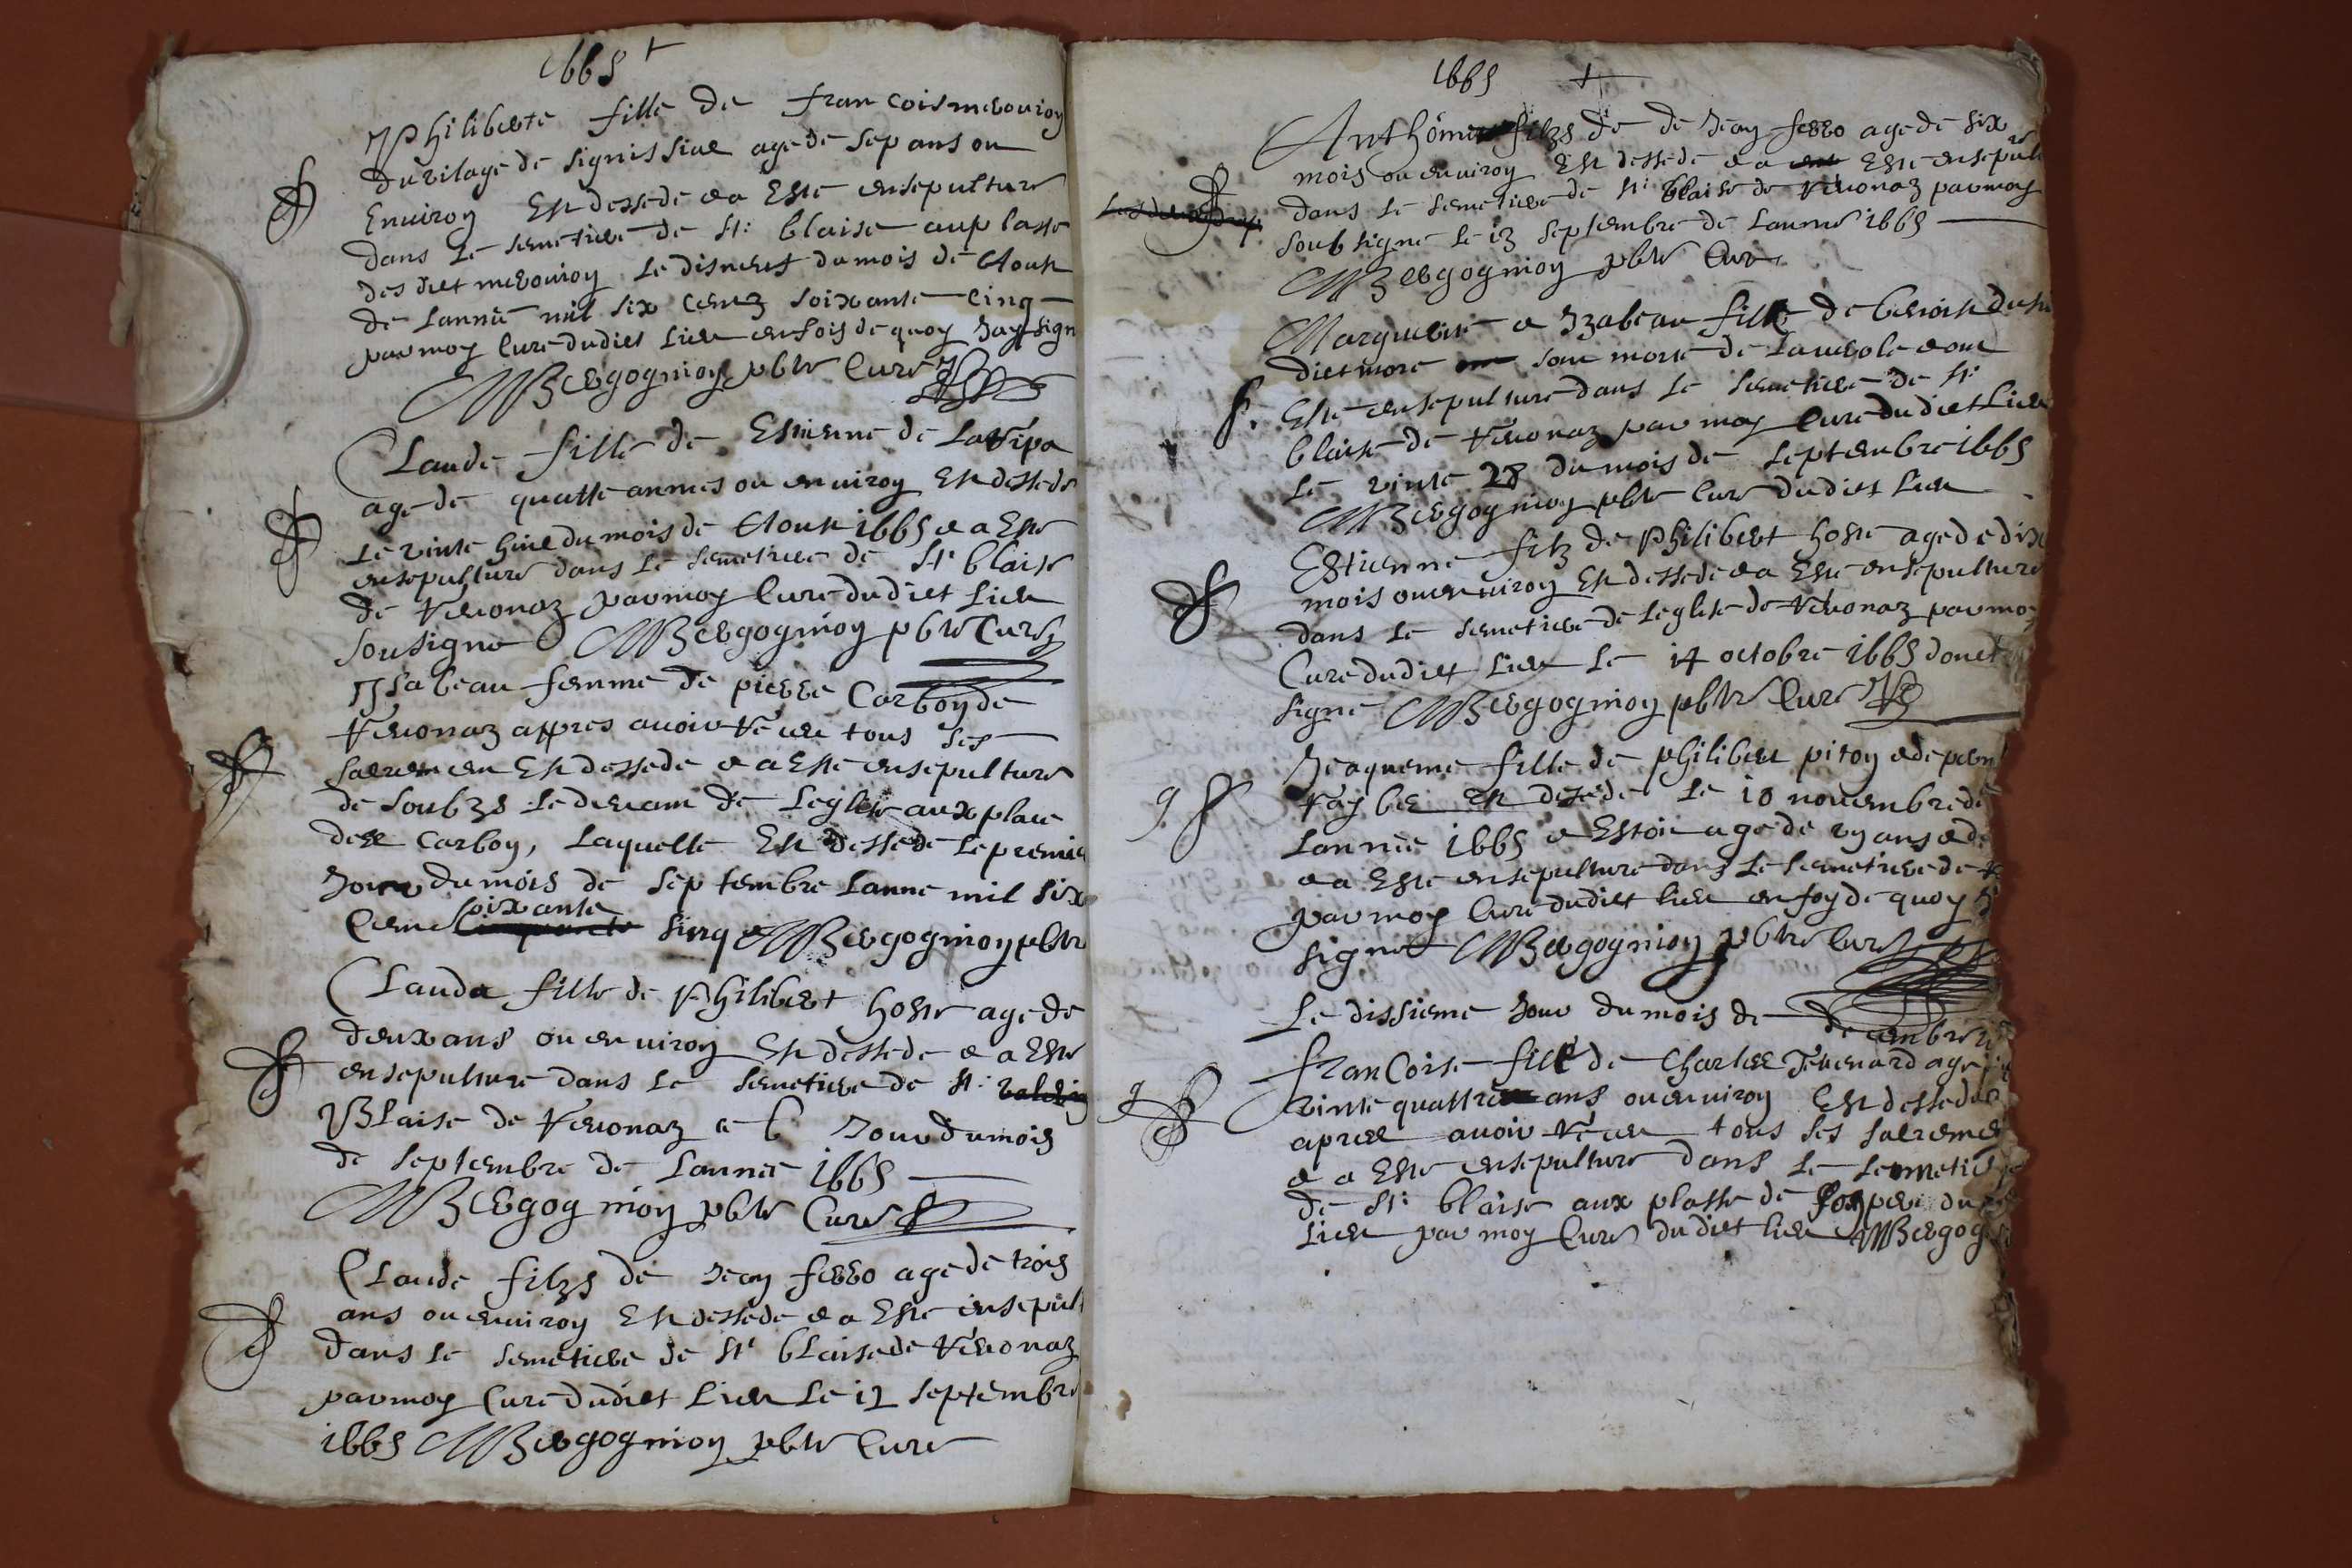 1665 +
Philiberte fille de francois merouion
du vilage de signissiat age de sep ans ou
Enuiron Est dessede e a Este ensepulture
dans Le semetiere de st: blaise aux plasse
des diet merouion Le disneuf du mois de Aoust
de Lannee mil six cents soixante cinq
par moy Cure dudiet Lieu en fois de quoy Jay sign
Bergognion pbtre Cure
Claude fille de Estienne de
age de quattre annees ou enuiron Est dessede
Le vinte huict du mois de Aoust 1665 e a Este
ensepulture dans Le semetiere de st blaise
de Veronaz par moy Cure dudiet Lieu
sousigne Bergognion pbtre Cure
Isabeau femme de pierre Carbon de
Veronaz appres auoir receu tous ses
sacremen Est dessede e a Este ensepulture
de soubzs Le deuant de Leglise aux place
des Carbon, Laquelle Est dessede Le premie
Jour du mois de septembre Lanne mil six
Cent soixante sinq Bergognion pbtre
Clauda fille de Philibert hoste age de
deux ans ou enuiron Est dessede e a Este
ensepulture dans Le semetiere de st:
Blaise de Veronaz e 6 Jour du mois
de septembre de Lannee 1665
Bergognion pbtre Cure
Claude filzs de Jean ferro age de trois
ans ou enuiron Est dessede e a Este ensepult
dans Le semetiere de st blaise de Veronaz
par moy Cure dudiet Lieu Le 12 septembre
1665 Bergognion pbtre Cure
1665 +
Anthoine filzs de de Jean ferro age de six
mois ou enuiron Est dessede e a Este ensepult
dans Le semetiere de st: blaise de Veronaz par moy
soubsigne Le 13 septembre de Lannee 1665
Bergognion pbtre Cure
Marguerite e Izabeau fille de benoist
sont morte de La e ont
Este ensepulture dans Le semetiere de st:
blaise de Veronaz par moy Cure dudiet Lieu
Le vinte 28 du mois de septembre 1665
Bergognion pbtre Cure dudiet Lieu
Estienne filz de Philibert hoste age de dix
mois ou enuiron Est dessede e a Este ensepulture
dans Le semetiere de Leglise de Veronaz par moy
Cure dudiet Lieu Le 14 octobre 1665
signe Bergognion pbtre Cure
Jeaqueme fille de philibert piton
Est dessede Le 10 nouembre de
Lannee 1665 e Estoit age de ans
e a Este ensepulture dans Le semetiere de
par moy Cure dudiet lieu en foy de quoy
signe Bergognion pbtre Cure
Le dissieme Jour du mois de decembre
francoise fille de Charles Teuenard age
vinte quattre ans ou enuiron Est dessede
apres auoir receu tous ses sacremen
e a Este ensepulture dans Le semetie
de st: blaise aux plasse de
Lieu par moy Cure dudiet lieu Bergog